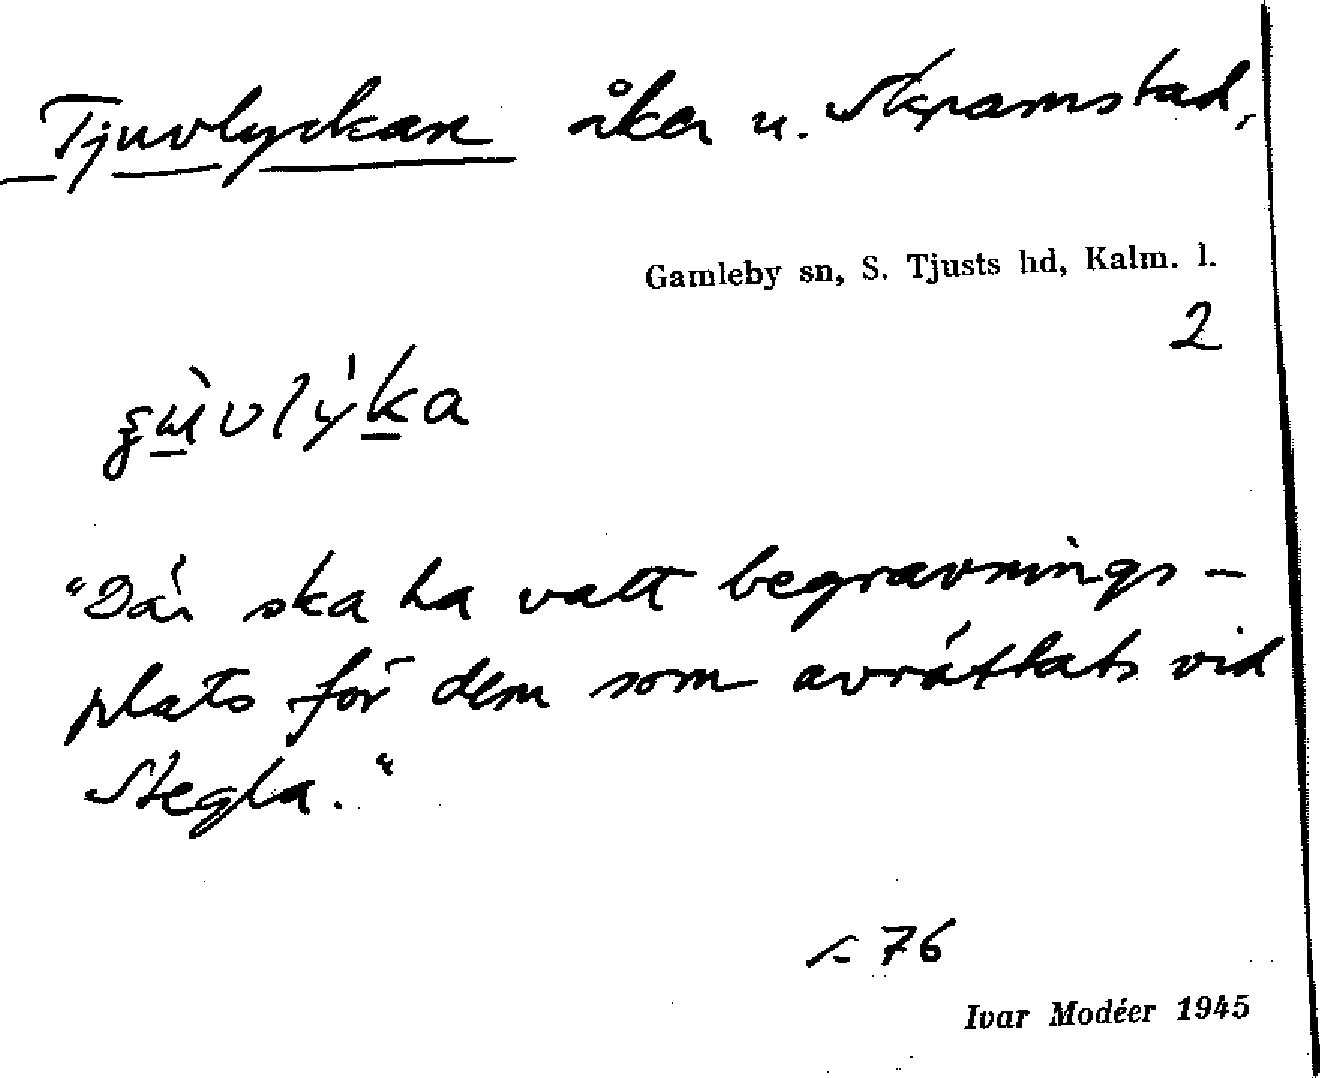 Tjuvlyckan åker u. Skramstad,
Gamleby sn, S. Tjusts hd, Kalm. l.
2
"Där ska ha vatt begravnings-
plats för dem som avrättats vid
Stegla."
76
Ivar Modéer 1945